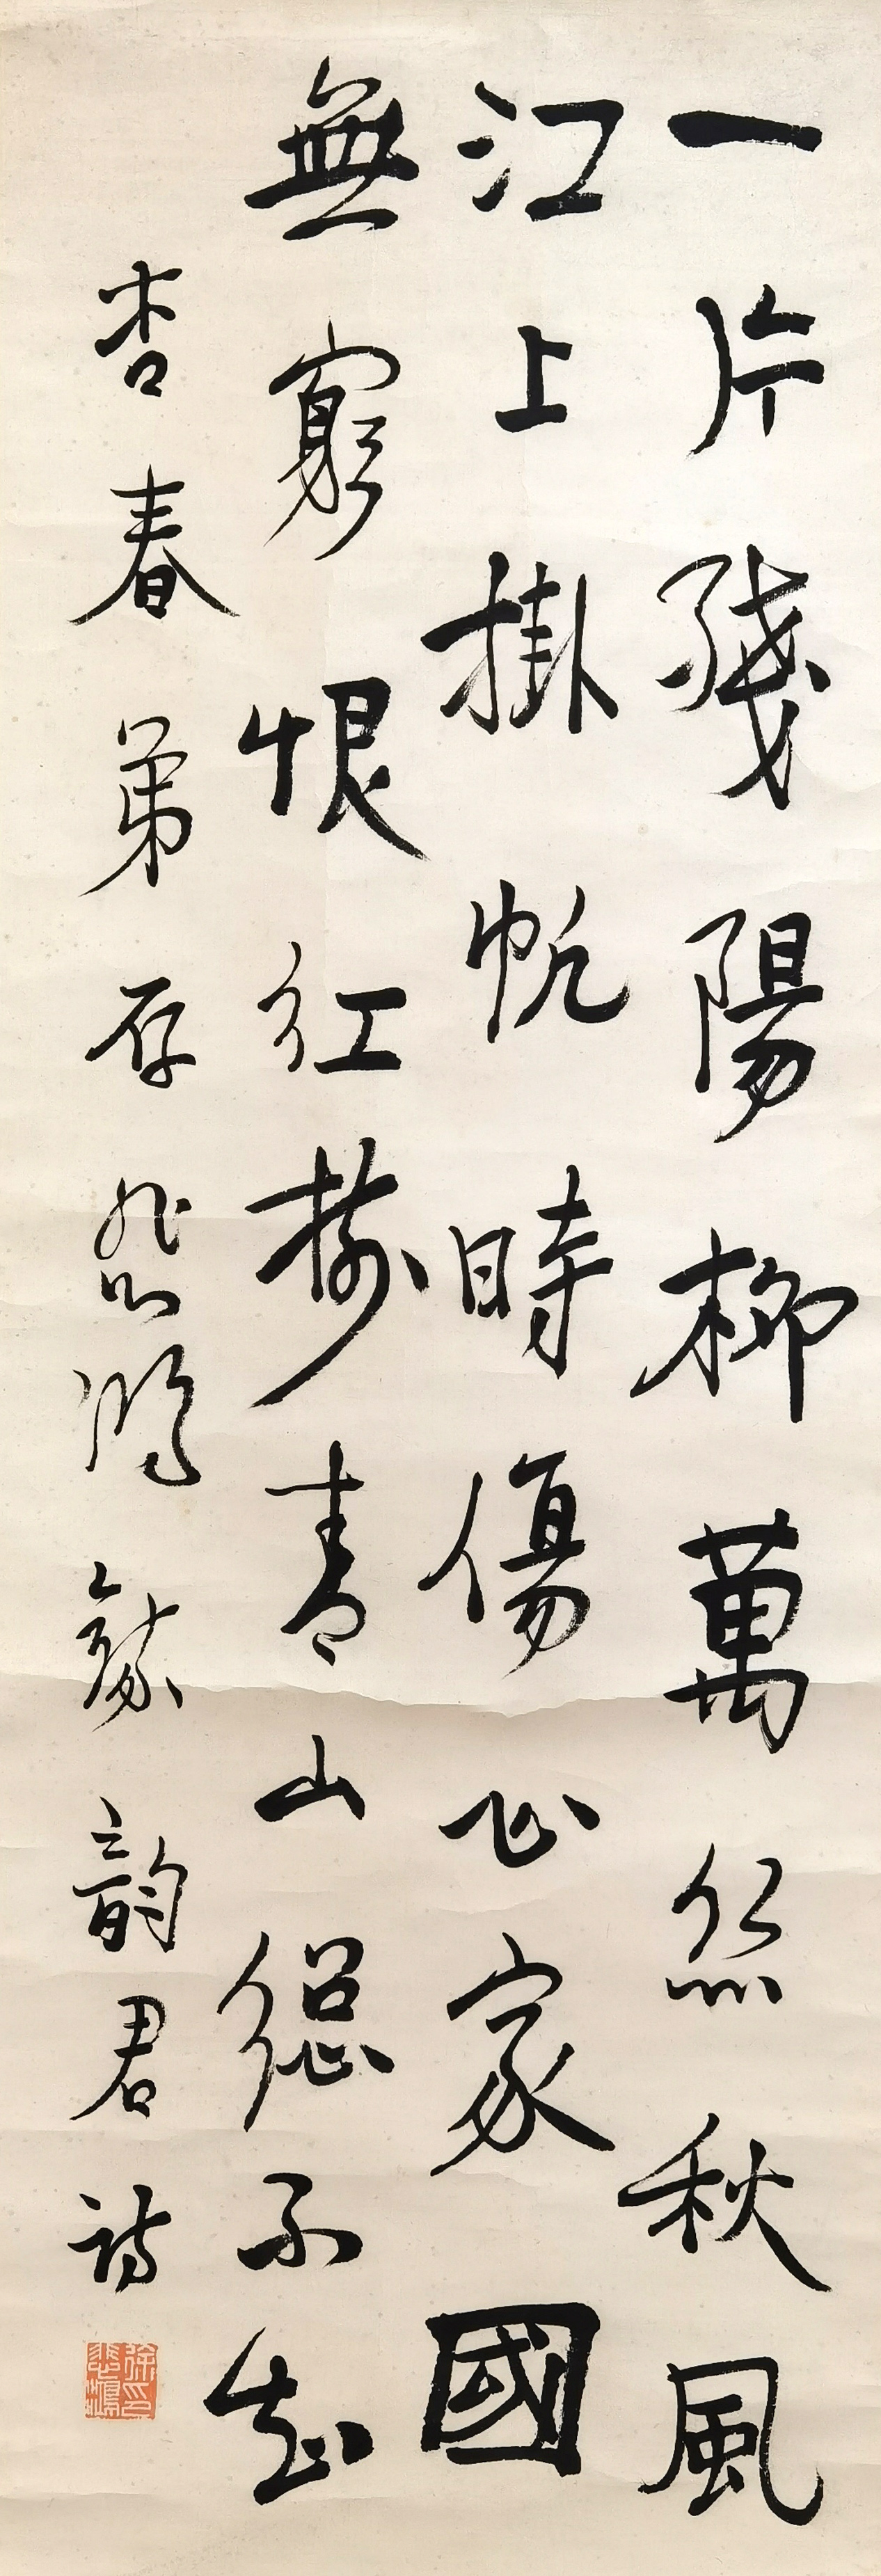 一片殘陽柳萬絲秋風
江上掛帆時傷心家國
無窮恨紅樹青山總不知
杏春弟存悲鴻錄韵君詩
徐悲鴻印